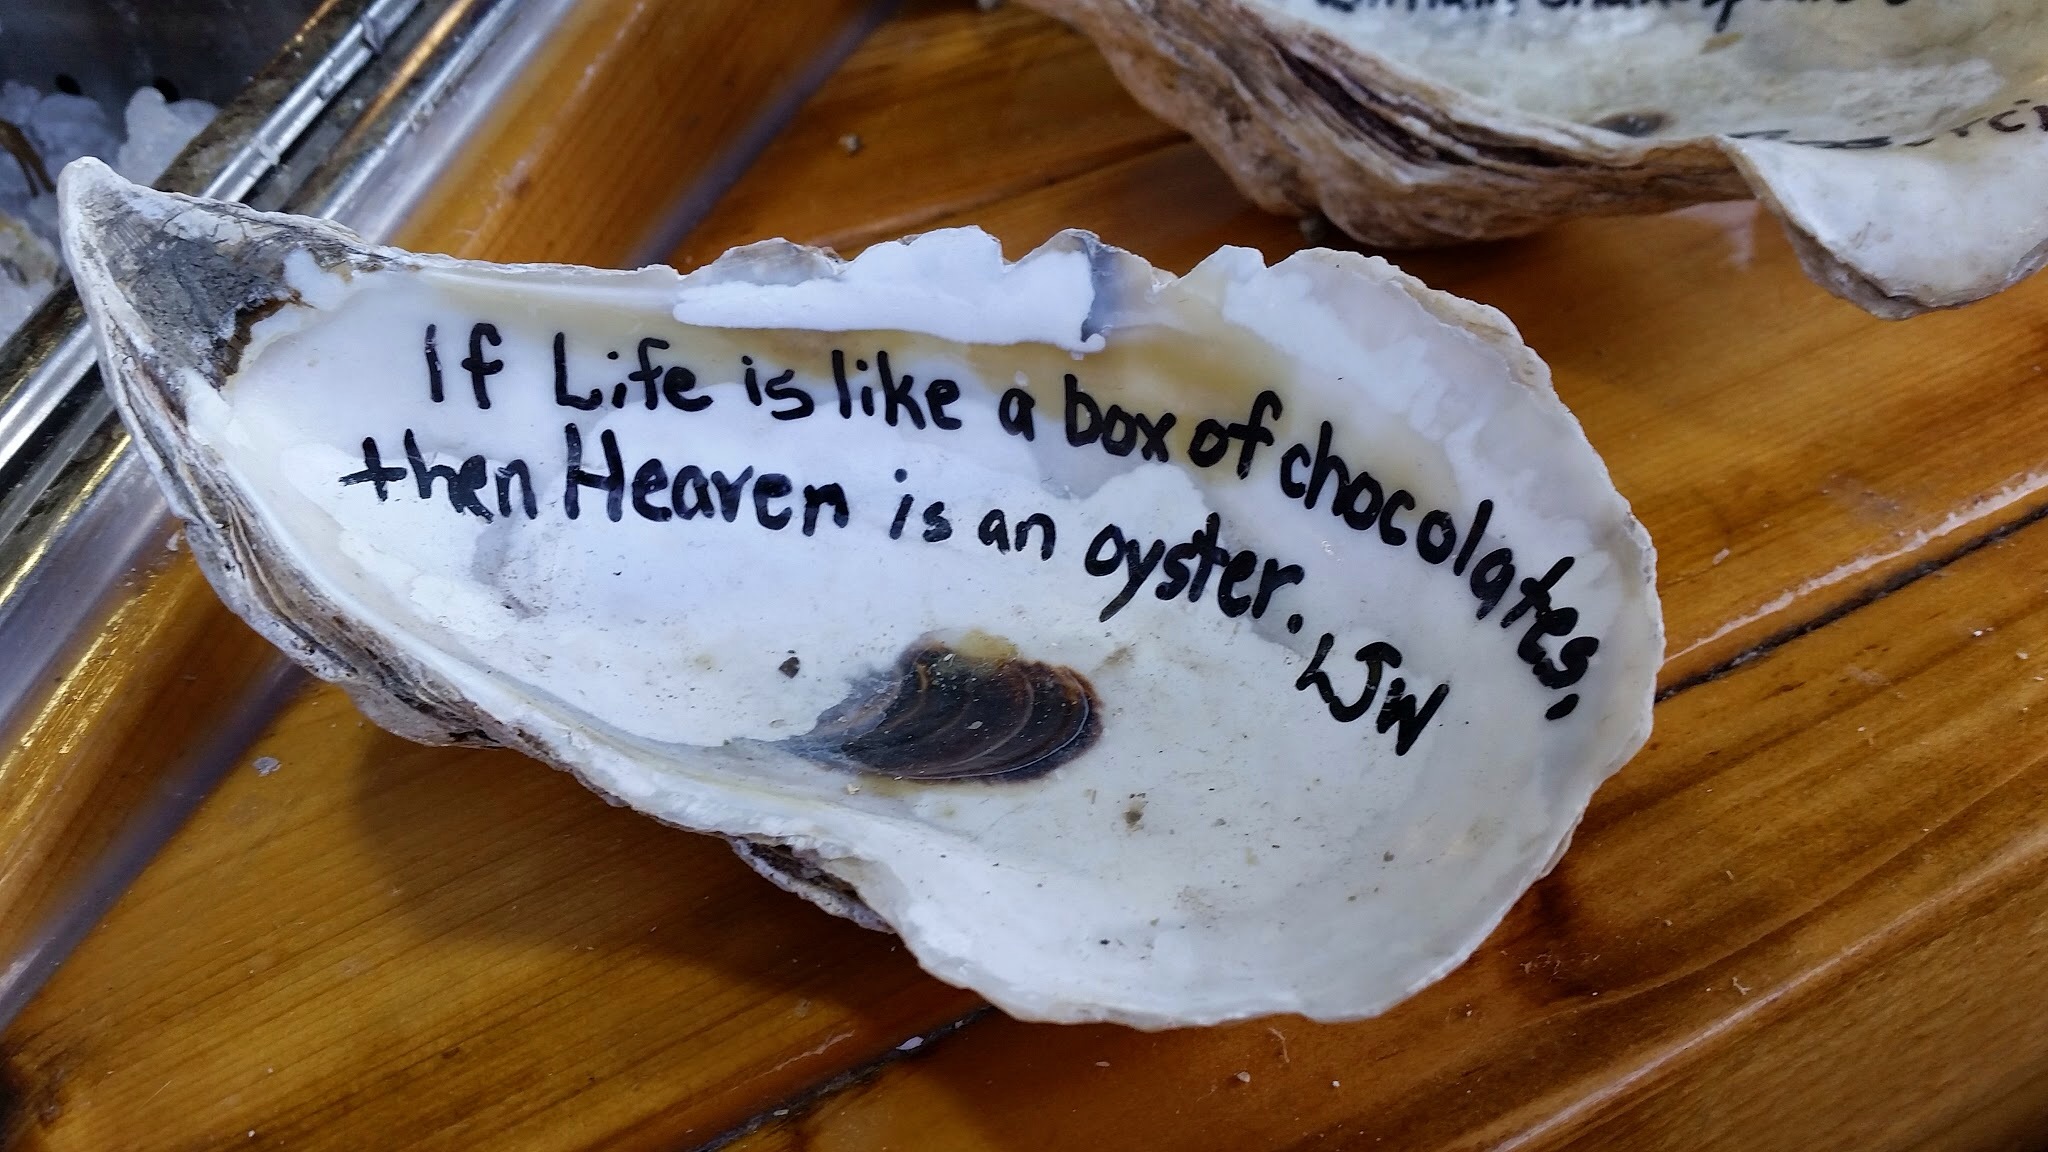 If Life is like a box of chocolates,
then Heaven is an oyster. WJW